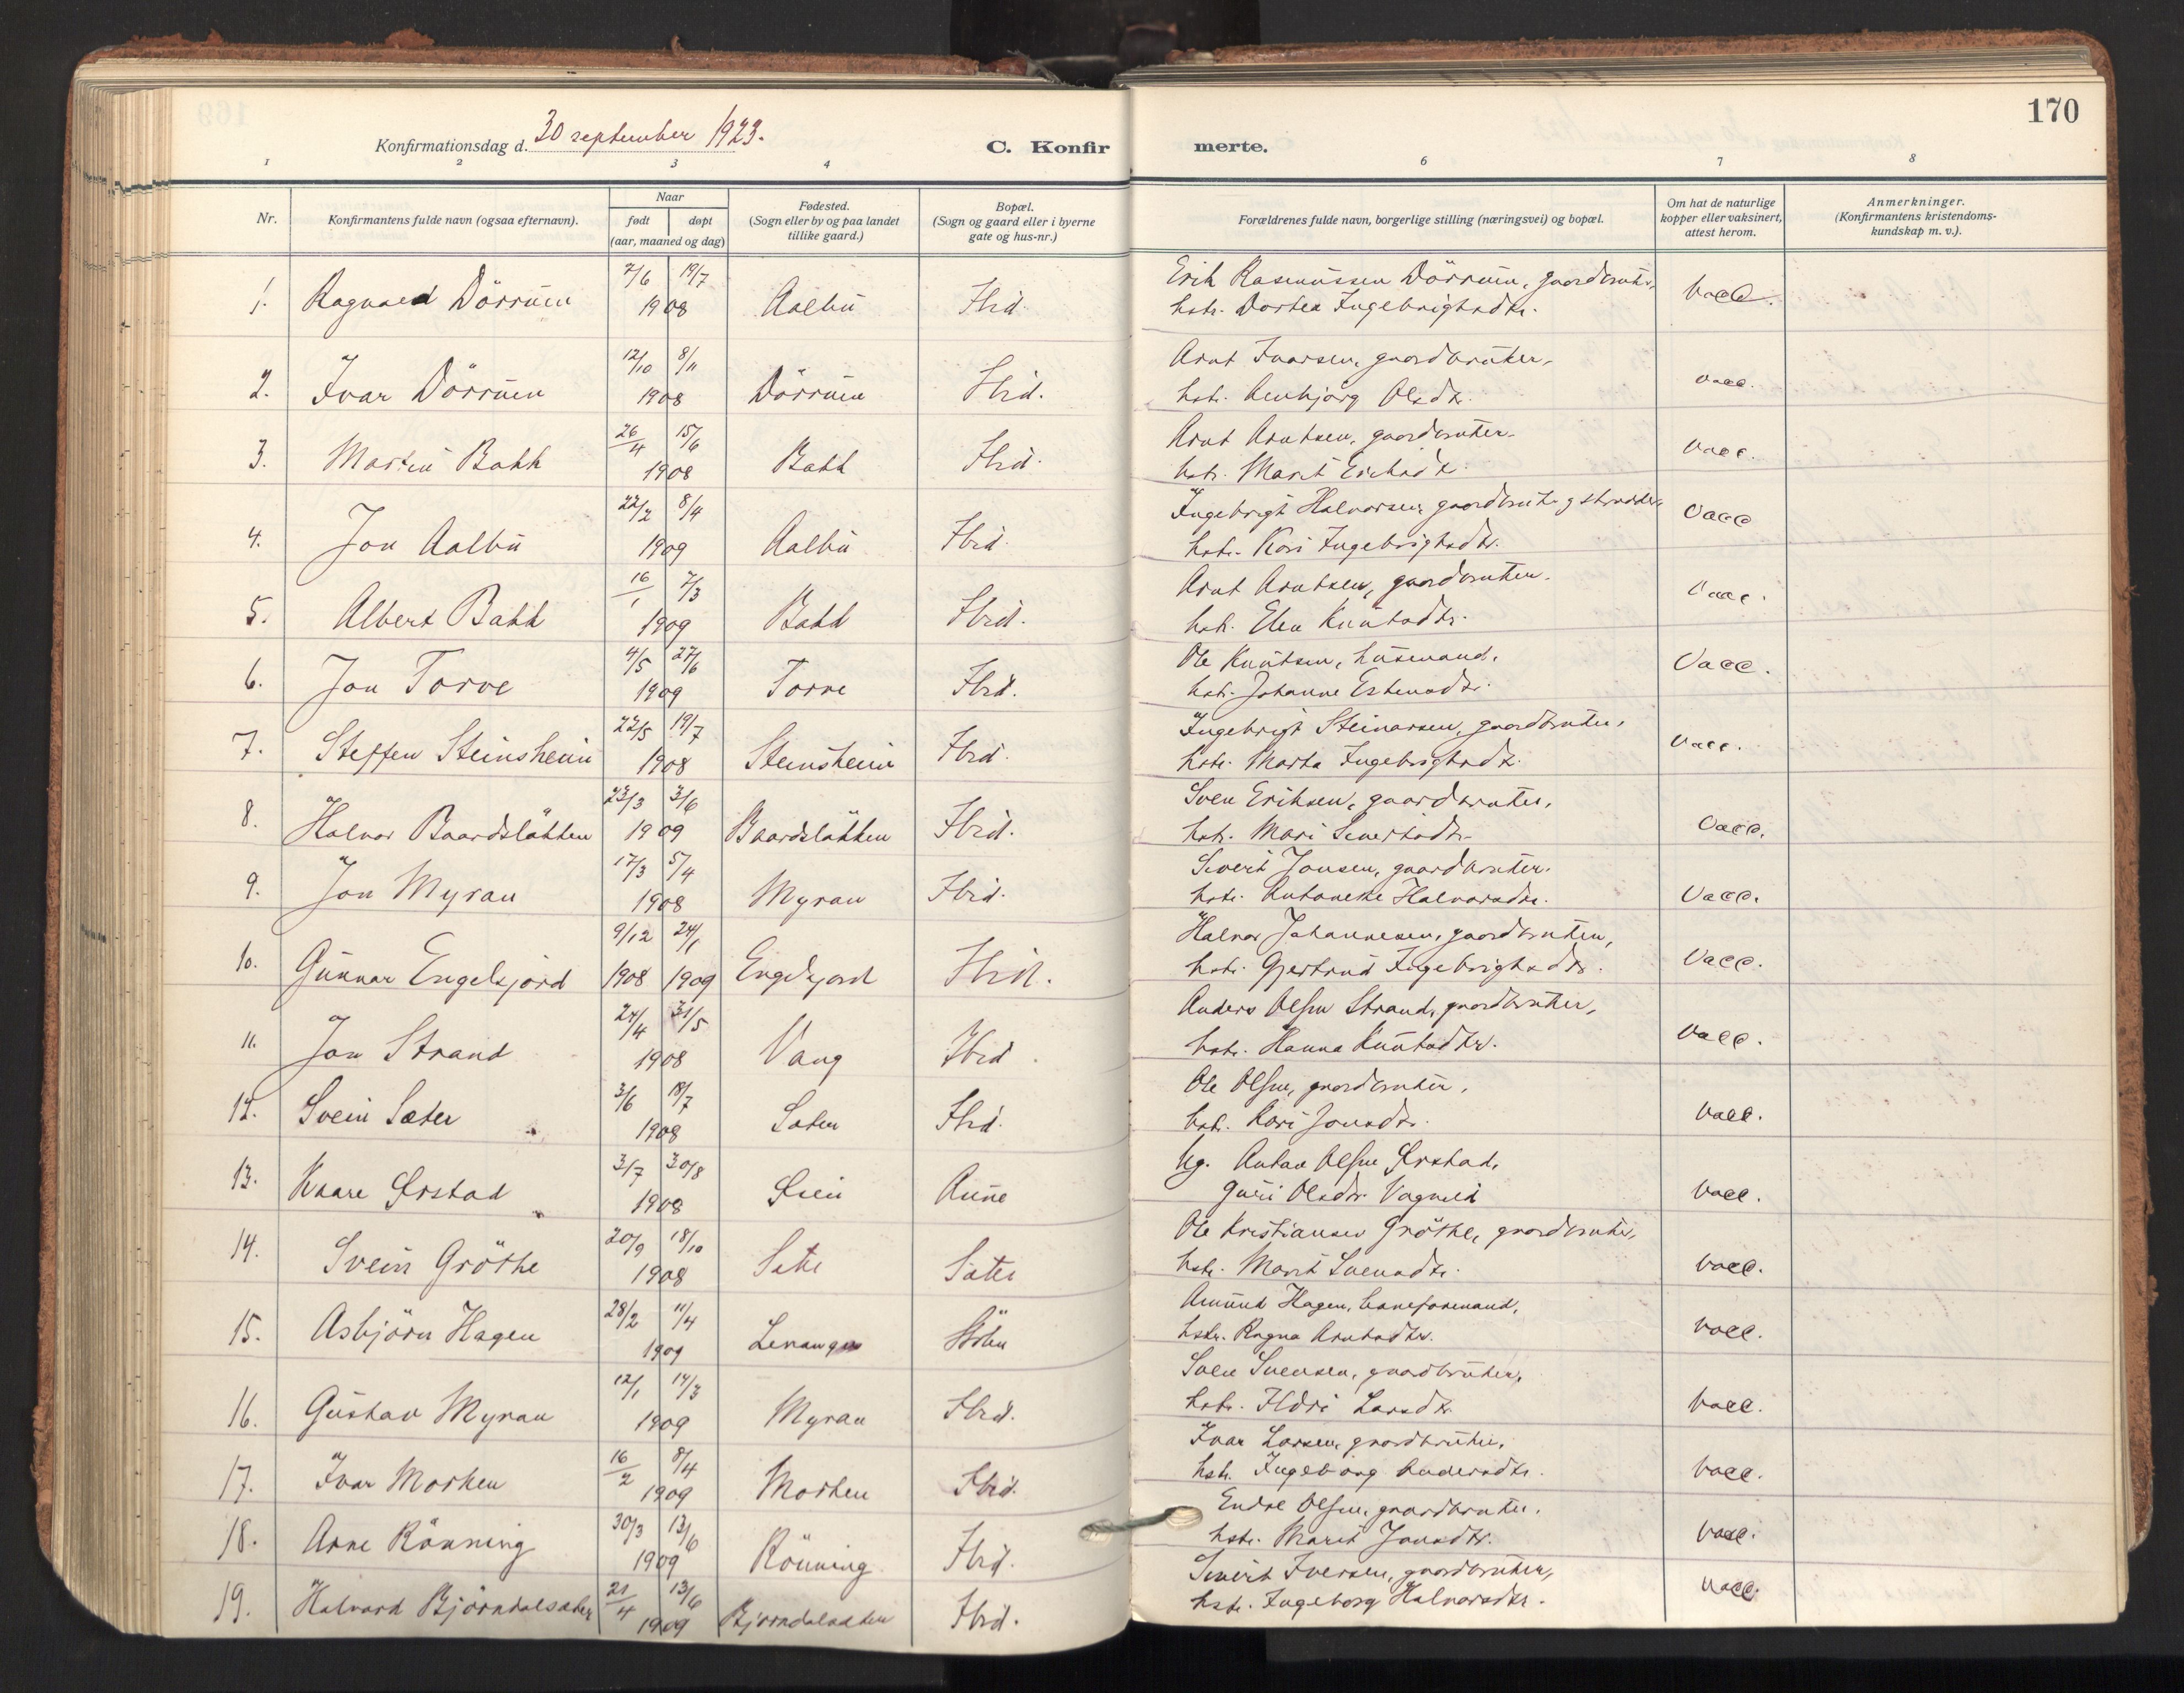 170
Konfirmationsdag d. 30 september 1923.
C. Konfirmerte.
1 2 3 4 6 7 8
Nr.
Konfirmantens fulde navn (ogsaa efternavn).
Naar
født døpt
(aar, maaned og dag)
Fødested.
(Sogn eller by og paa landet
tillike gaard.)
Bopæl.
(Sogn og gaard eller i byerne
gate og hus-nr.)
Forældrenes fulde navn, borgerlige stilling (næringsvei) og bopæl.
Om hat de naturlige
kopper eller vaksinert,
attest herom.
Anmerkninger.
(Konfirmantens kristendoms-
kundskap m. v.).
7/6 19/7 Erik Rasmussen Dörrum, gaardbruker,
1. Ragnvald Dörrum 1908 Aalbu Ibid. hstr. Dortea Ingebrigtsdtr. Vacc.
12/10 8/11 Arnt Ivarsen, gaardbruker,
2. Ivar Dörrum 1908 Dörrum Ibid. hstr. Olsdtr. vacc.
26/4 15/6 Arnt Arntsen, gaardbruker.
3. Martin Bakk 1908 Bakk Ibid. hstr. Marit Eriksdtr. Vacc.
22/2 8/4 Ingebrigt Halvorsen, gaardbruk. og
4. Jon Aalbu 1909 Aalbu Ibid. hstr. Kari Ingebrigtsdtr. Vacc
16/1 7/3 Arnt Arntsen, gaardbruker.
5. Albert Bakk 1909 Bakk Ibid. hstr. Elen Knutsdtr. Vacc.
4/5 27/6 Ole Knutsen, husmand,
6. Jon Torve 1909 Torve Ibid. hstr. Johanne Estensdtr. Vacc.
22/5 19/7 Ingebrigt Steinarsen, gaardbruker,
7. Steffen Steinsheim 1908 Steinsheim Ibid. hstr. Marta Ingebrigtsdtr. Vacc.
23/3 3/6 Sven Eriksen, gaardbruker,
8. Halvor Baardsløkken 1909 Baardsløkken Ibid. hstr. Mari Sivertsdtr. Vacc.
17/3 5/4 Sivert Jonsen, gaardbruker.
9. Jon Myran 1908 Myran Ibid. hstr. Antonette Halvorsdtr. Vacc.
9/12 24/1 Halvor Johannesen, gaardbruker,
10. Gunnar Engelsjord 1908 1909 Engelsjord Ibid. hstr. Gjertrud Ingebrigtsdtr. Vacc.
24/4 31/5 Anders Olsen Strand, gaardbruker,
11. Jon Strand 1908 Vang Ibid. hstr. Hanna Knutsdtr. Vacc.
3/6 18/7 Ole Olsen, gaardbruker,
12. Svein Sæter 1908 Sæter Ibid. hstr. Kari Jonsdtr. Vacc.
3/7 30/8 Ug. Anton Olsen Ørstad,
13. Kaare Ørstad 1908 Aune Guri Olsdtr. Vognild Vacc.
20/9 18/10 Ole Kristiansen Gröthe, gaardbruker,
14. Svein Gröthe 1908 Sæter Sæter hstr. Marit Svensdtr. Vacc.
28/2 11/4 Amund Hagen, baneformand,
15. Asbjörn Hagen 1909 Støbu hstr. Ragna Arntsdtr. Vacc.
12/1 14/3 Sven Svensen, gaardbruker,
16. Gustav Myran 1909 Myran Ibid. hstr. Ildri Larsdtr. Vacc.
16/2 8/4 Ivar Larsen, gaardbruker,
17. Ivar Morken 1909 Morken Ibid. hstr. Ingeborg Andersdtr. Vacc.
30/3 13/6 Endre Olsen, gaardbruker.
18. Arne Rönning 1909 Rönning Ibid. hstr. Marit Jonsdtr. Vacc.
21/4 13/6 Sivert Iversen, gaardbruker,
19. Halvard Bjørndalsæter 1909 Bjørndalsæter Ibid. hstr. Ingeborg Halvorsdtr. Vacc.